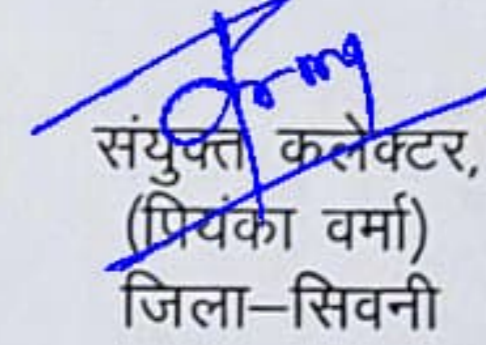 संयुक्त कलेक्टर,
(पियंका वर्मा)
जिला–सिवनी